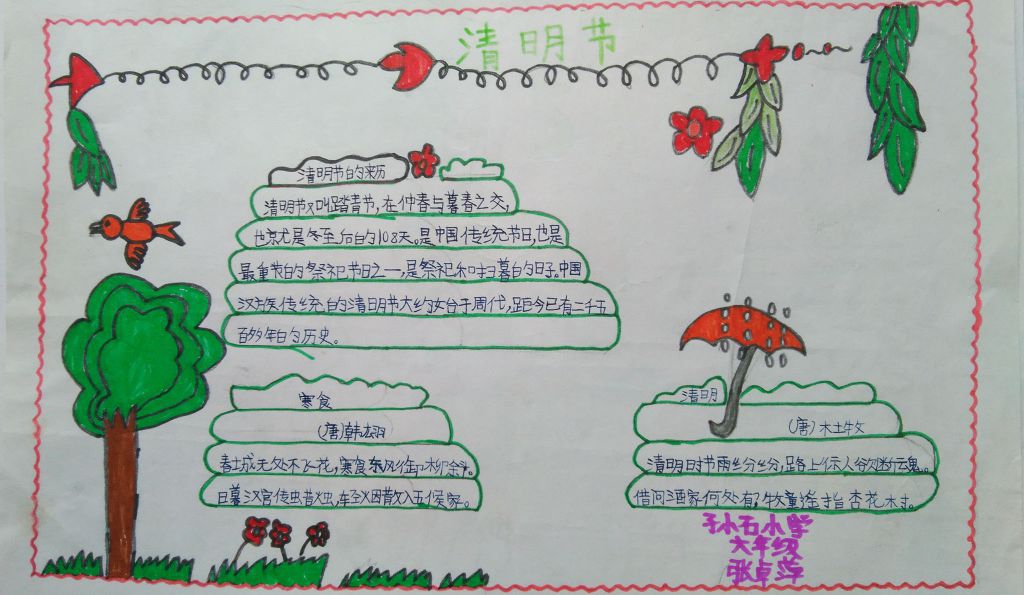 清明节
清明节的来历
清明节又叫踏青节,在仲春与暮春之交,
也就是冬至后的108天。是中国传统节日,也是
最重要的祭祀节日之一,是祭祀和扫暮的日子。中国
汉族传统的清明节大约始于周代,距今已有二千五
百多年的历史。
寒食
(唐)韩翃
春城无处不飞花,寒食东风御柳斜。
日暮汉宫传蜡烛,轻烟散入五侯家。
清明
(唐)杜牧
清明时节雨纷纷,路上行人欲断魂。
借问酒家何处有?牧童遥指杏花村。
孙石小学
六年级
张卓萍